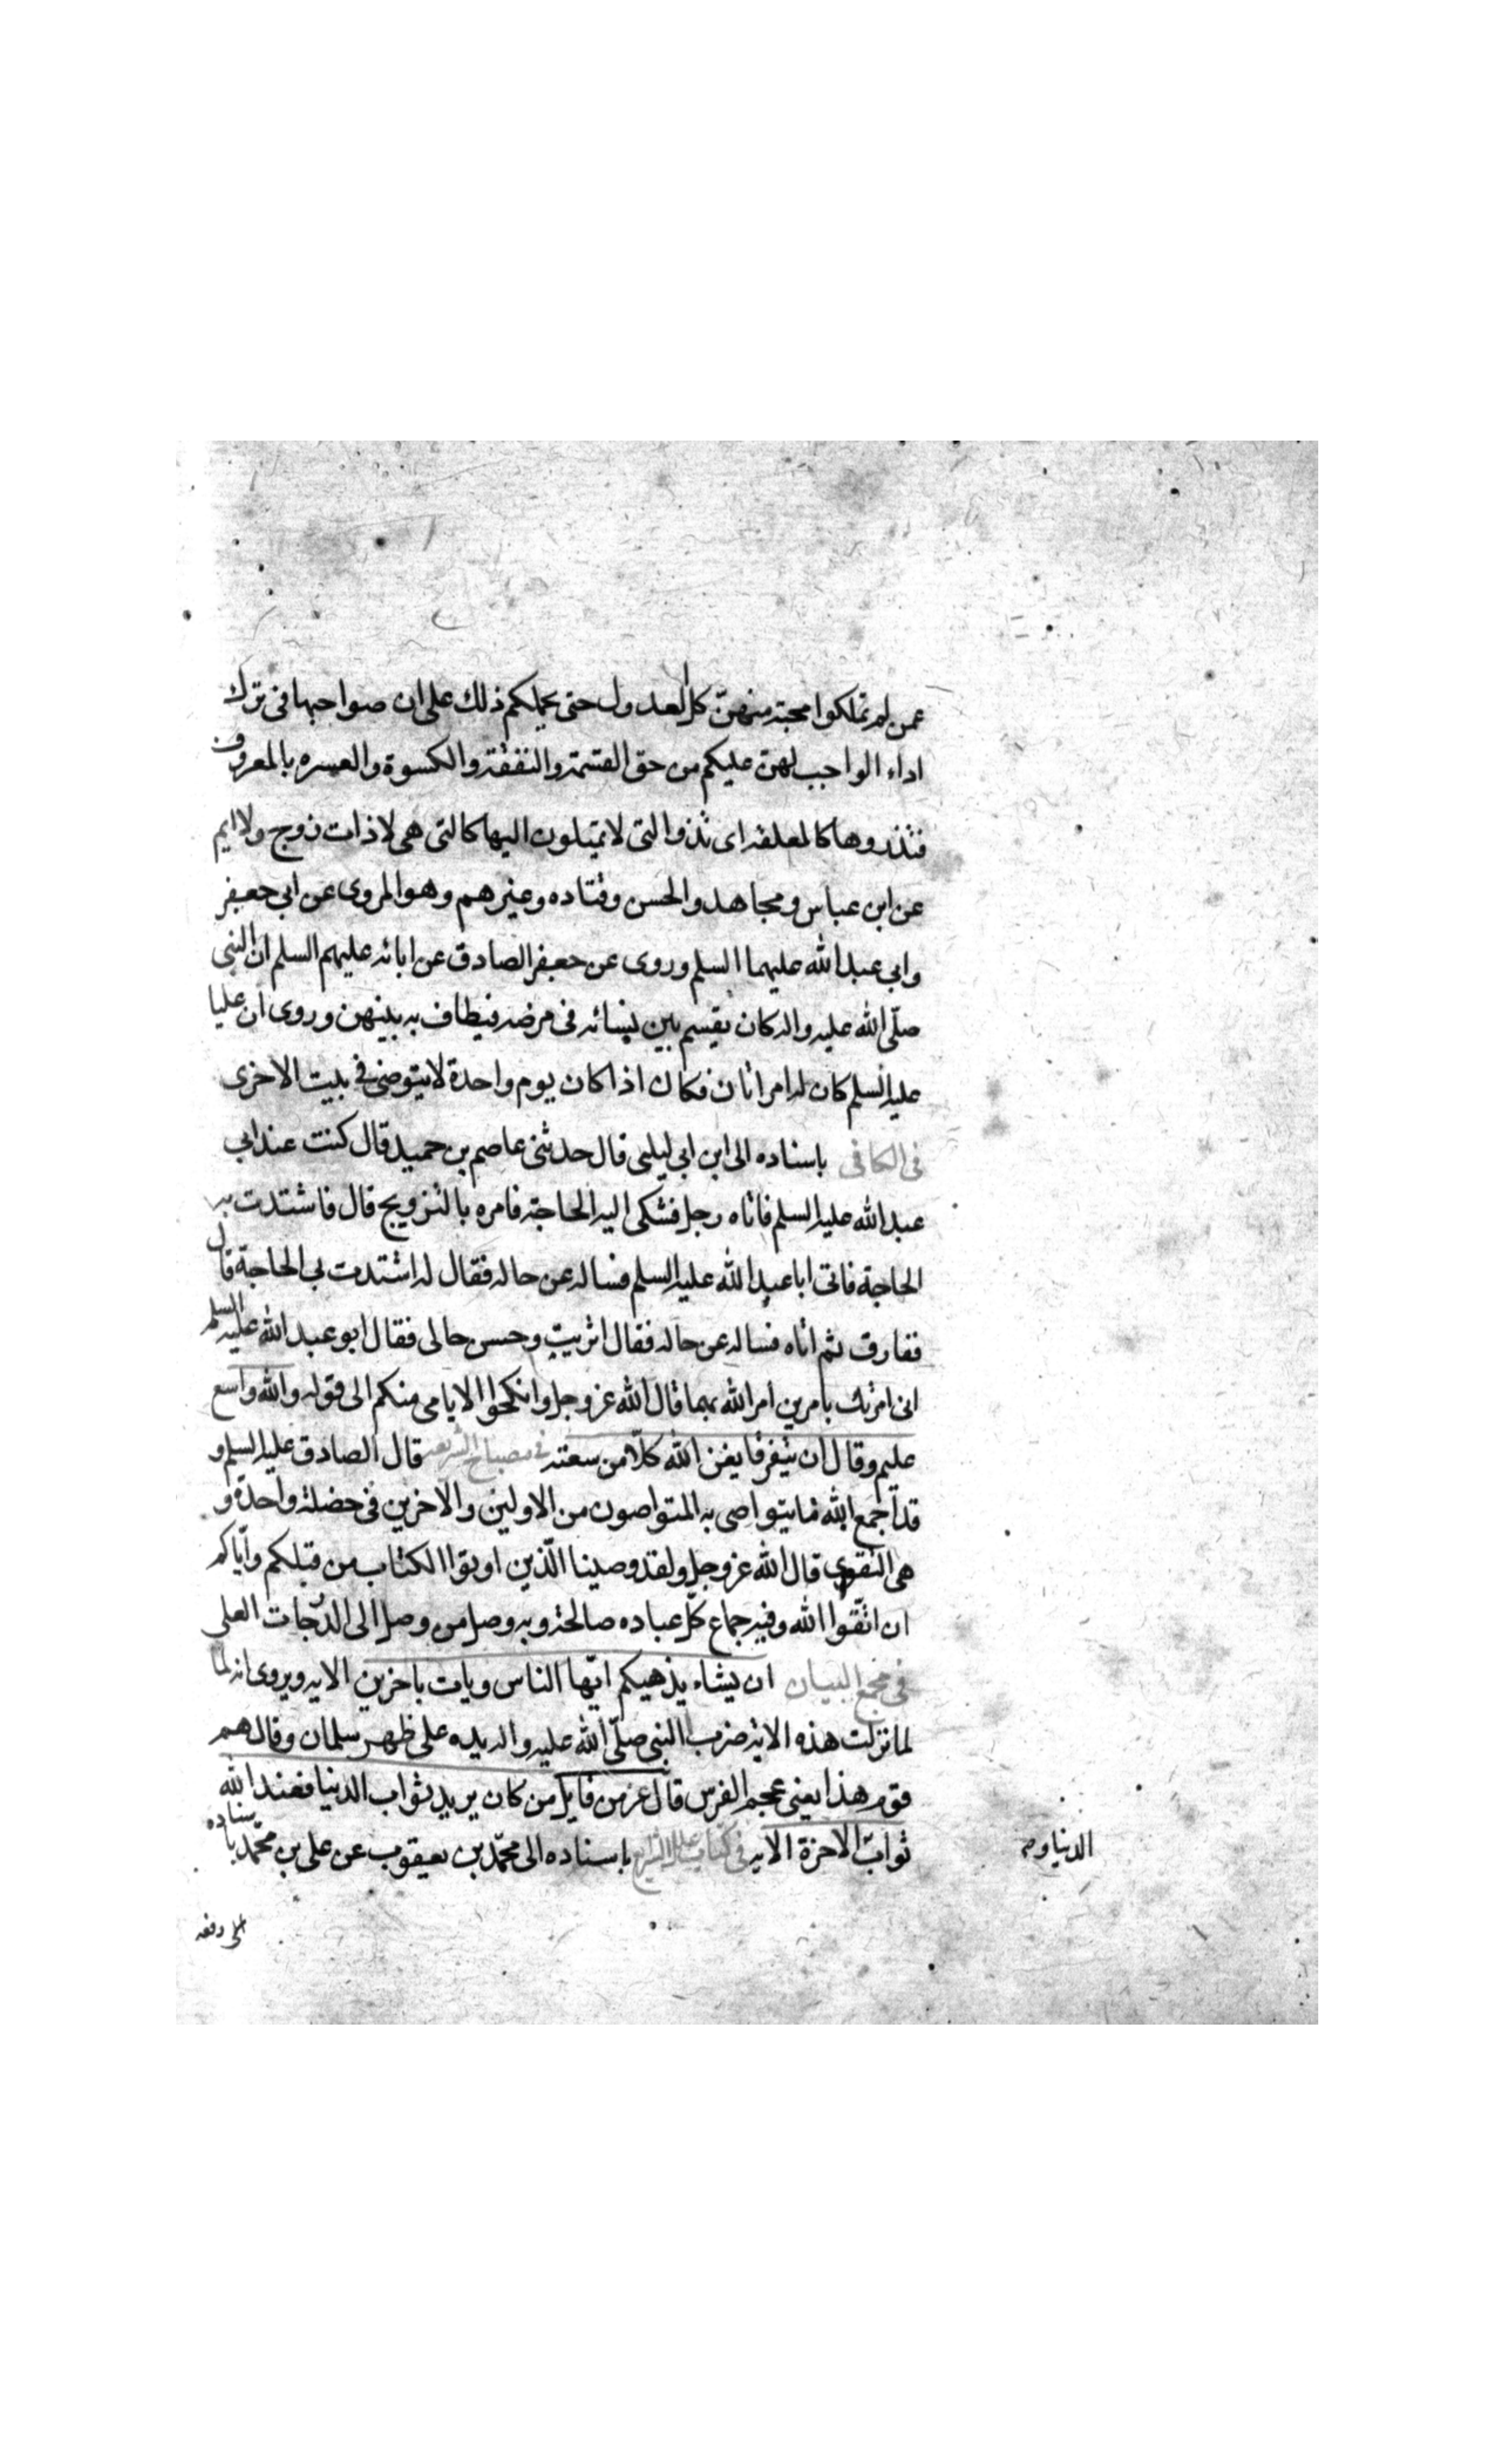 عمن لم تملكوا محبته منهن كل العدول حتى يحملكم ذلك على ان صواحبها فى ترك
اداء الواجب لهن عليكم من حق القسمة والنفقة والكسوة والعسره بالمعروف
فتذروها كالمعلقه اى تذروا التى لا تميلون اليها كالتى هى لا ذات زوج ولا ايم
عن ابن عباس ومجاهد والحسن وقتاده وغيرهم وهو المروى عن ابى جعفر
وابى عبد الله عليهما السلم وروى عن جعفر الصادق عن ابائه عليهم السلم ان النبى
صلّى الله عليه واله كان يقسم بين نسائه فى مرضه فيطاف به بينهن وروى ان عليا
عليه السلم كان له امراتان فكان اذا كان يوم واحدة لا يتوضى فى بيت الاخرى
فى الكافى باسناده الى ابن ابى ليلى قال حدثنى عاصم بن حميد قال كنت عند ابى
عبد الله عليه السلم فاتاه رجل فشكى اليه الحاجة فامره بالتزويج قال فاشتدت به
الحاجة فاتى ابا عبد الله عليه السلم فساله عن حاله فقال له اشتدت بى الحاجة قال
ففارق ثم اتاه فساله عن حاله فقال اثريت وحسن حالى فقال ابو عبد الله عليه السلم
انى امرتك بامرين امر الله بهما قال الله عز وجل وانكحوا الايامى منكم الى قوله والله واسع
عليم وقال ان يتفرقا يغن الله كلّا من سعته فى مصباح الشريعه قال الصادق عليه السلم و
قد اجمع الله ما يتواصى به المتواصون من الاولين والاخرين فى خصلة واحدة و
هى التقوى قال الله عز وجل ولقد وصينا الّذين اوتوا الكتاب من قبلكم وايّاكم
ان اتّقوا الله وفيه جماع كلّ عباده صالحة وبه وصل من وصل الى الدّرجات العلى
فى مجمع البيان ان يشاء يذهبكم ايّها الناس ويات باخرين الايه ويروى انه لما
لما نزلت هذه الاية ضرب النبى صلّى الله عليه واله يده على ظهر سلمان وقال هم
قوم هذا يعنى عجم الفرس قال عز من قايل من كان يريد ثواب الدنيا فعند الله
ثواب الاخرة الايه فى كتاب علل الشرايع باسناده الى محمّد بن يعقوب عن على بن محمّد باسناده
الدنيا و
رفعه